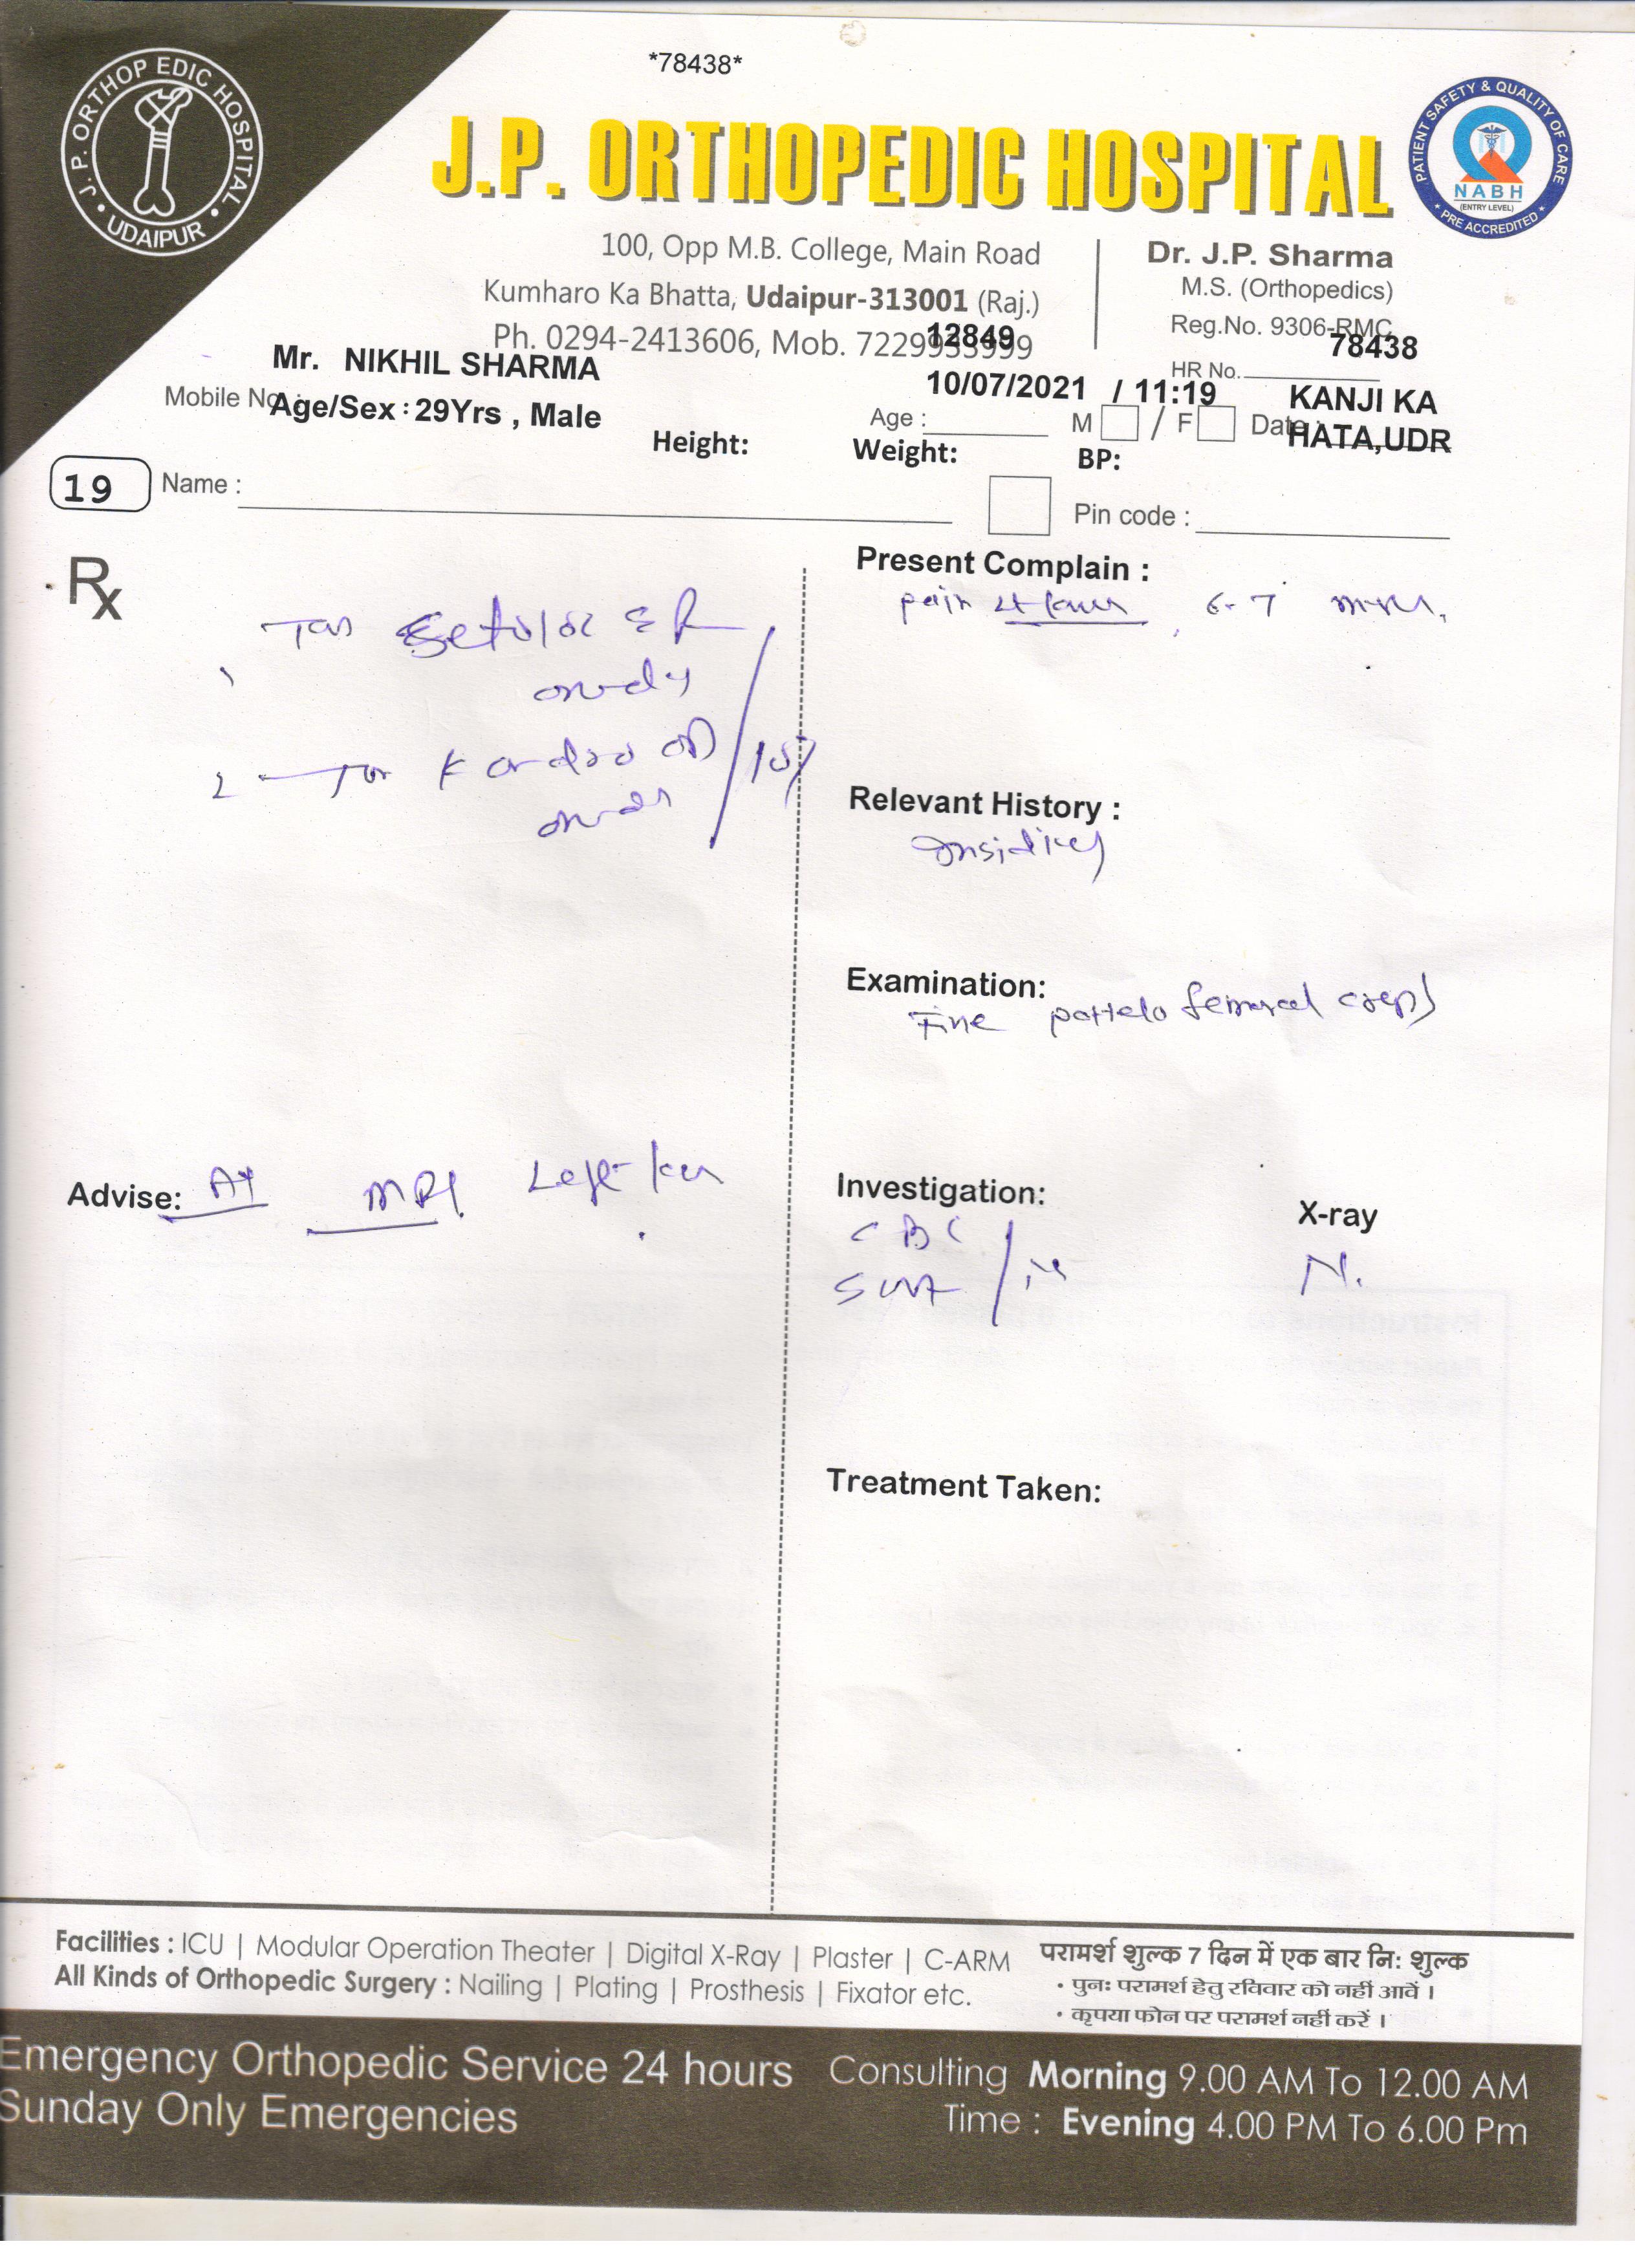 *78438*
J.P. ORTHOPEDIC HOSPITAL
UDAIPUR
PATIENT SAFETY & QUALITY OF CARE
NABH
(ENTRY LEVEL)
PRE ACCREDITED
J.P. ORTHOPEDIC HOSPITAL
100, Opp M.B. College, Main Road
Kumharo Ka Bhatta, Udaipur-313001 (Raj.)
Ph. 0294-2413606, Mob.
12849
Dr. J.P. Sharma
M.S. (Orthopedics)
Reg.No. 9306-RMC
78438
HR No.
Mr. NIKHIL SHARMA
Mobile No
Age/Sex : 29Yrs , Male
10/07/2021 / 11:19
KANJI KA
HATA,UDR
Age : M / F Date
Height: Weight: BP:
19 Name :
Pin code :
Rx
2
Present Complain :
pain 6-7
Relevant History :
Examination:
Fine patello femoral
Advise: MRI Left
Investigation:
CBC
X-ray
N.
Treatment Taken:
Facilities : ICU | Modular Operation Theater | Digital X-Ray | Plaster | C-ARM
All Kinds of Orthopedic Surgery : Nailing | Plating | Prosthesis | Fixator etc.
परामर्श शुल्क 7 दिन में एक बार नि: शुल्क
• पुनः परामर्श हेतु रविवार को नहीं आवें ।
• कृपया फोन पर परामर्श नहीं करें ।
Emergency Orthopedic Service 24 hours
Sunday Only Emergencies
Consulting Morning 9.00 AM To 12.00 AM
Time : Evening 4.00 PM To 6.00 Pm